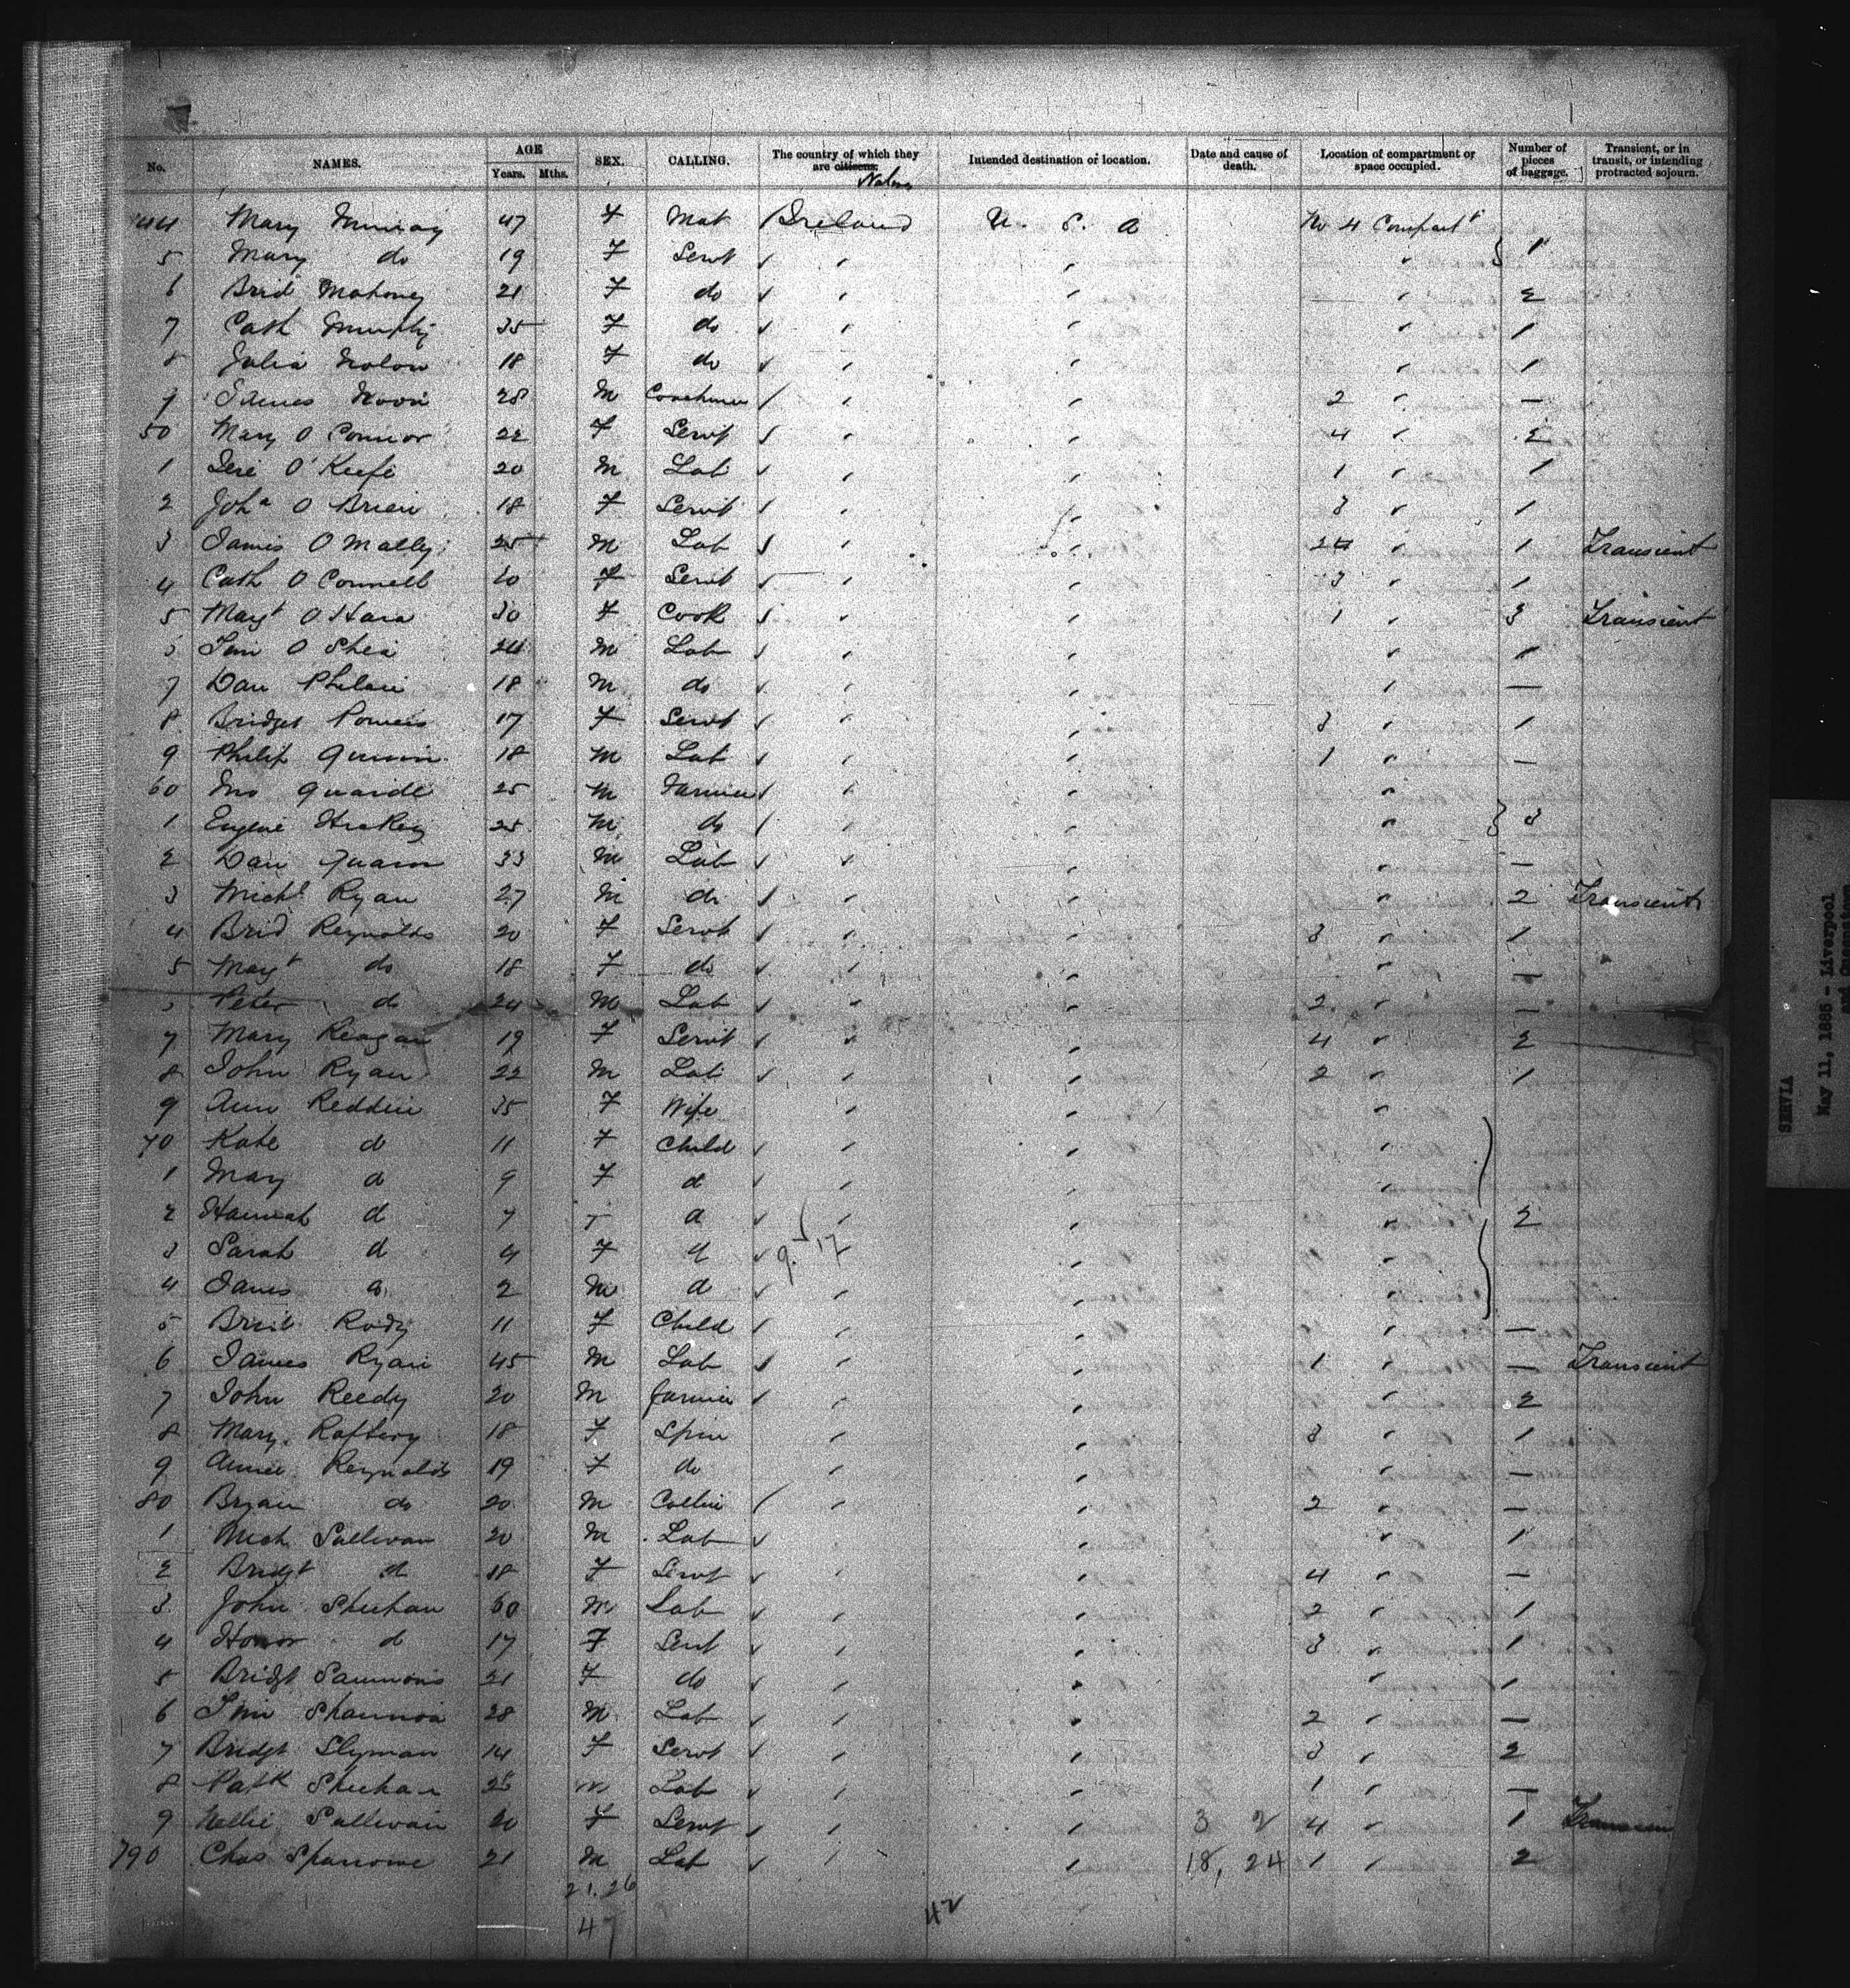 No. NAMES. AGE Years. Mths. SEX. CALLING. The country of which they are citizens. Natives Intended destination or location. Date and cause of death. Location of compartment or space occupied. Number of pieces of baggage. Transient, or in transit, or intending protracted sojourn.
744 Mary Murray 47 F Mat Ireland U. S. A No 4 Compart
5 Mary do 19 F Servt 1
6 Brid Mahoney 21 F do 2
7 Cath Murphy 35 F do 1
8 Julia Nolon 18 F do 1
9 James 28 M Coachman 2 —
50 Mary O Connor 22 F Servt 4 2
1 Jere O'Keefe 20 M Lab 1 1
2 Joha O Brien 18 F Servt 3 1
3 James O Mally 25 M Lab 1 Transient
4 Cath O Connell 20 F Servt 3 1
5 Magt O Hara 30 F Cook 1 3 Transient
6 Tim O Shea 24 M Lab 1
7 Dan Phelan 18 M do —
8 Bridget Powers 17 F Servt 3 1
9 Philip Quinn 18 M Lab 1 —
60 Jno 25 M Farmer
1 Eugene 25 M do 3
2 Dan 33 M Lab —
3 Michl Ryan 27 M do 2 Transient
4 Brid Reynolds 20 F Servt 3 1
5 Magt do 18 F do —
6 Peter do 24 M Lab 2 —
7 Mary Reagan 19 F Servt 4 2
8 John Ryan 22 M Lab 2 1
9 Ann Reddin 35 F Wife
70 Kate d 11 F Child
1 Mary d 9 F d
2 Hannah d 7 F d 2
3 Sarah d 4 F d 9. 17
4 James d 2 M d
5 Brid Rody 11 F Child —
6 James Ryan 45 M Lab 1 — Transient
7 John Reedy 20 M Farmer 2
8 Mary Raftery 18 F Spin 3 1
9 Annie Reynolds 19 F do —
80 Bryan do 20 M Collier 2 —
1 Mich Sullivan 20 M Lab 1
2 Bridgt d 18 F Servt 4 —
3 John Sheehan 60 M Lab 2 1
4 Honor d 17 F Servt 3 1
5 Bridgt Sammons 21 F do 1
6 Tim Shannon 28 M Lab 2 —
7 Bridgt Slyman 14 F Servt 3 2
8 Patk Sheehan 25 M Lab 1 —
9 Nellie Sullivan 20 F Servt 3 2 4 1
790 Chas Sparrowe 21 M Lab 18, 24 1 2
21. 26
47
42
SERVIA
May 11, 1885 - Liverpool
and Queenstown